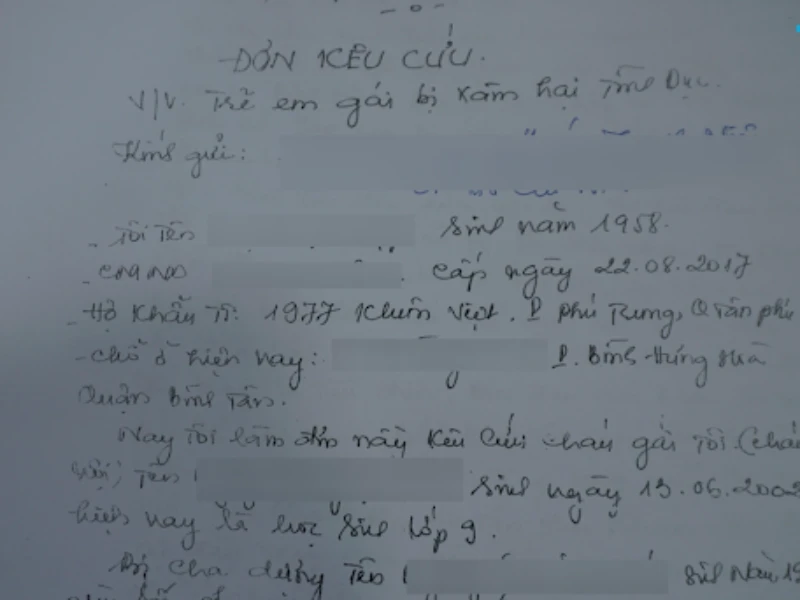 ĐƠN KÊU CỨU.
V/V. Trẻ em gái bị xâm hại Tình Dục.
Kính gửi:
- Tôi Tên sinh năm 1958.
- CMND cấp ngày 22.08.2017
- Hộ khẩu TT: 1977 Khuôn Việt. P Phú Trung, Q Tân phú
- chỗ ở hiện nay: P. Bình Hưng Hoà
Quận Bình Tân.
Nay Tôi làm đơn này kêu cứu cháu gái Tôi (cháu
nội) Tên sinh ngày 13.06.2002
hiện nay là học sinh lớp 9.
Bị cha dượng Tên sinh Năm 19